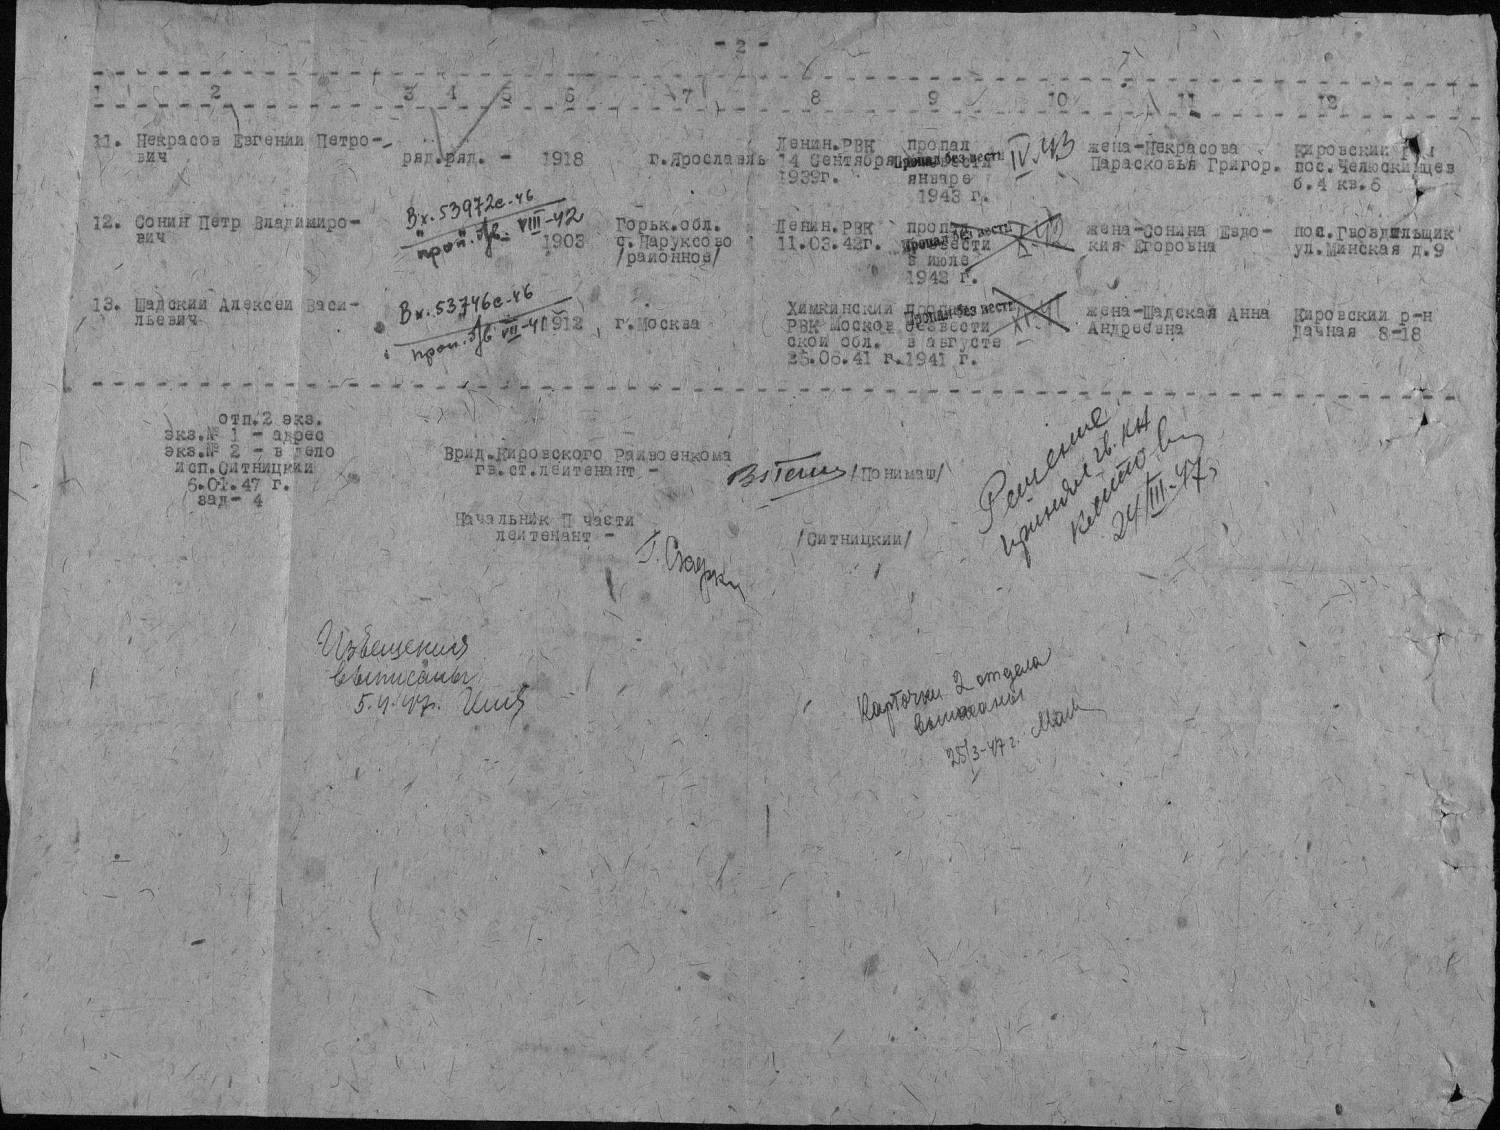 - 2 -
1 2 3 4 5 6 7 8 9 10 11 12
11. Некрасов Евгений Петро-
вич
ряд.ряд. - 1918
г.Ярославль
Ленин.РВК
14 Сентября
1939г.
пропал
безвести
январе
1943 г.
Пропал без вести
IV.43
жена-Некрасова
Парасковья Григор.
Кировский р-н
пос.Челюскинцев
б.4 кв.6
12. Сонин Петр Владимиро-
вич
Вх.53972с-46
проп. VIII-42
1903
Горьк.обл.
с.Паруксово
/районное/
Ленин.РВК
11.03.42г.
пропал
безвести
в июле
1942 г.
Пропал без вести
X.42
жена-Сонина Евдо-
кия Егоровна
пос.Гвоздильщик
ул.Минская д.9
13. Шадский Алексей Васи-
льевич
Вх.53746с-46
проп. VII-41
1912
г.Москва
Химкинский
РВК Москов
ской обл.
25.06.41 г.
пропал
безвести
в августе
1941 г.
Пропал без вести
XI.41
жена-Шадская Анна
Андреевна
Кировский р-н
Дачная 8-18
отп.2 экз.
экз.№ 1 - адрес
экз.№ 2 - в дело
исп.Ситницкий
6.01.47 г.
зад- 4
Врид.Кировского Райвоенкома
гв.ст.лейтенант -
/Понимаш/
Начальник II части
лейтенант -
/Ситницкий/
Решение
принял гв. к-н
24/III-47г.
Извещения
выписаны
5.4.47г.
Карточки 2 отдела
выписаны
25/3-47г.